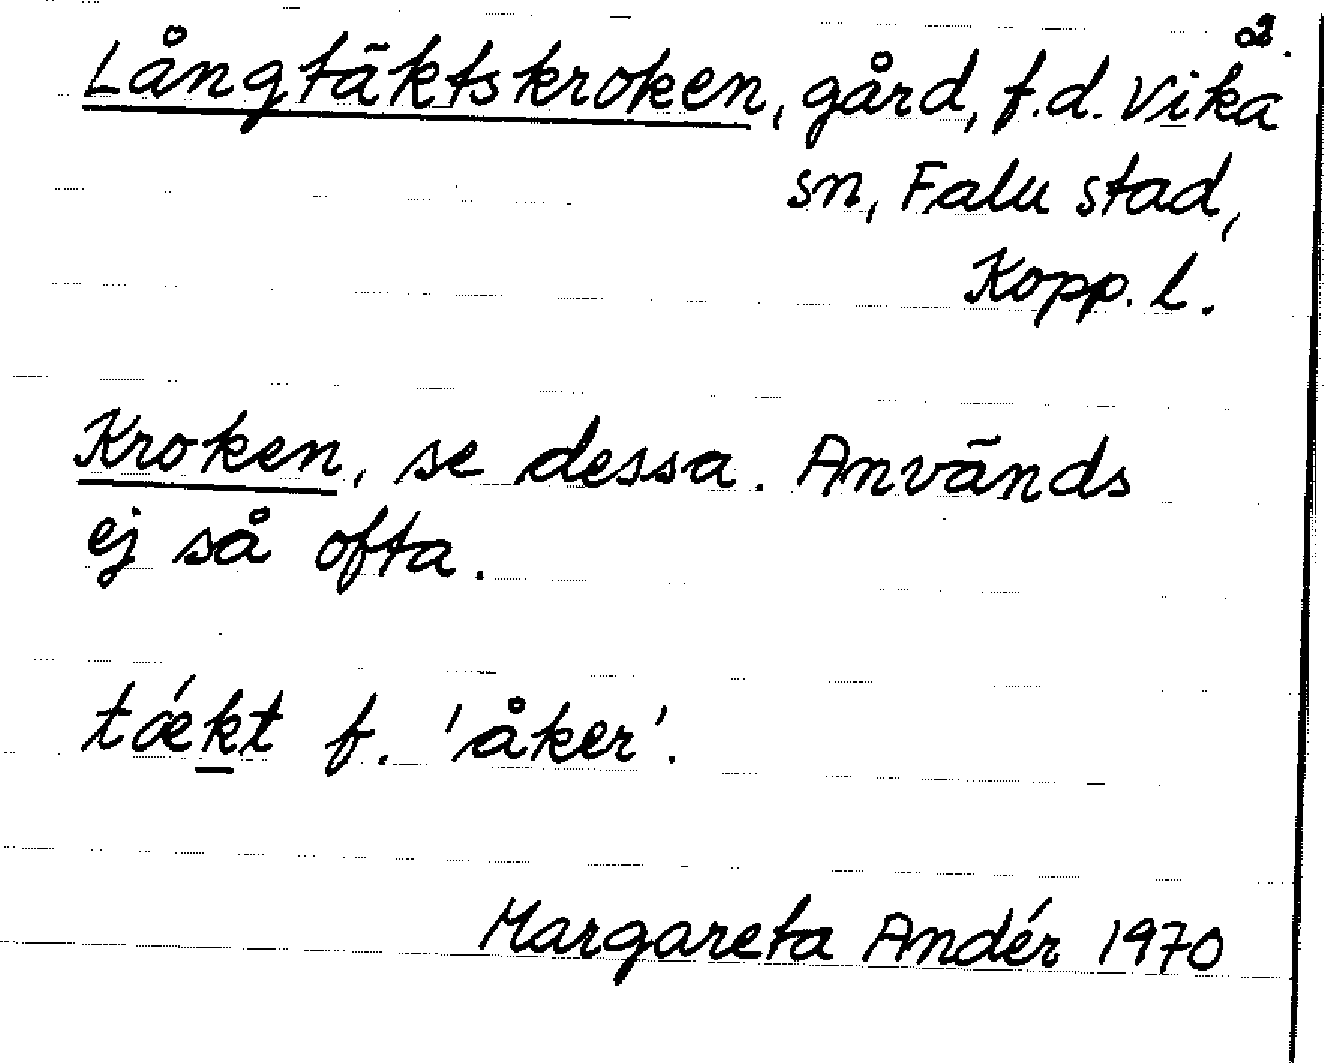 2.
Långtäktskroken, gård, f.d. Vika
sn, Falu stad,
Kopp. l.
Kroken, se dessa. Används
ej så ofta.
tǽkt f. 'åker'.
Margareta Andér 1970